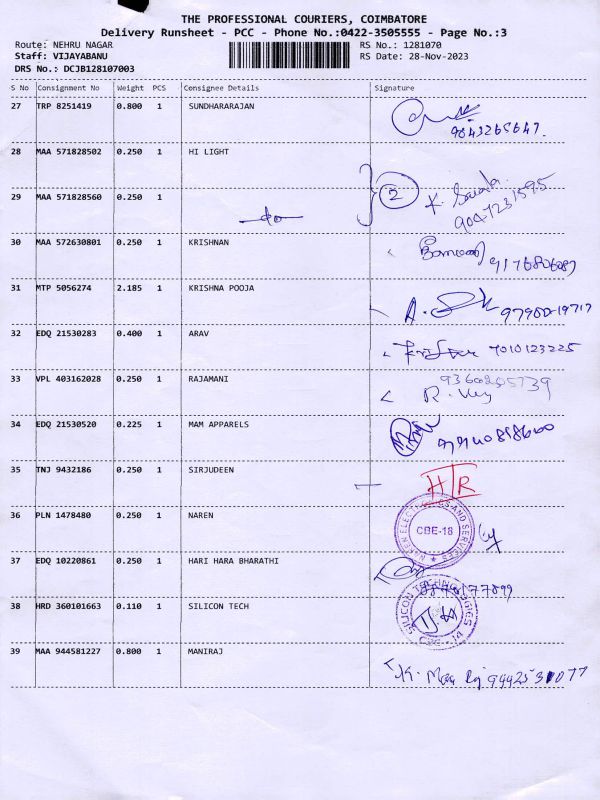 THE PROFESSIONAL COURIERS, COIMBATORE
Delivery Runsheet - PCC - Phone No.:0422-3505555 - Page No.:3
Route: NEHRU NAGAR RS No.: 1281070
Staff: VIJAYABANU RS Date: 28-Nov-2023
DRS No.: DCJB128107003
S No Consignment No Weight PCS Consignee Details Signature
27 TRP 8251419 0.800 1 SUNDHARARAJAN
9843265647.
28 MAA 571828502 0.250 1 HI LIGHT
29 MAA 571828560 0.250 1 2
-do- 9047231595
30 MAA 572630801 0.250 1 KRISHNAN
9176806087
31 MTP 5056274 2.185 1 KRISHNA POOJA
97900-19717
32 EDQ 21530283 0.400 1 ARAV
7010123225
33 VPL 403162028 0.250 1 RAJAMANI
34 EDQ 21530520 0.225 1 MAM APPARELS
35 TNJ 9432186 0.250 1 SIRJUDEEN HTR
36 PLN 1478480 0.250 1 NAREN
NAREN ELECTRONICS AND SERVICES
CBE-18
37 EDQ 10220861 0.250 1 HARI HARA BHARATHI
38 HRD 360101663 0.110 1 SILICON TECH
SILICON TECHNOLOGIES
CBE - 14
39 MAA 944581227 0.800 1 MANIRAJ